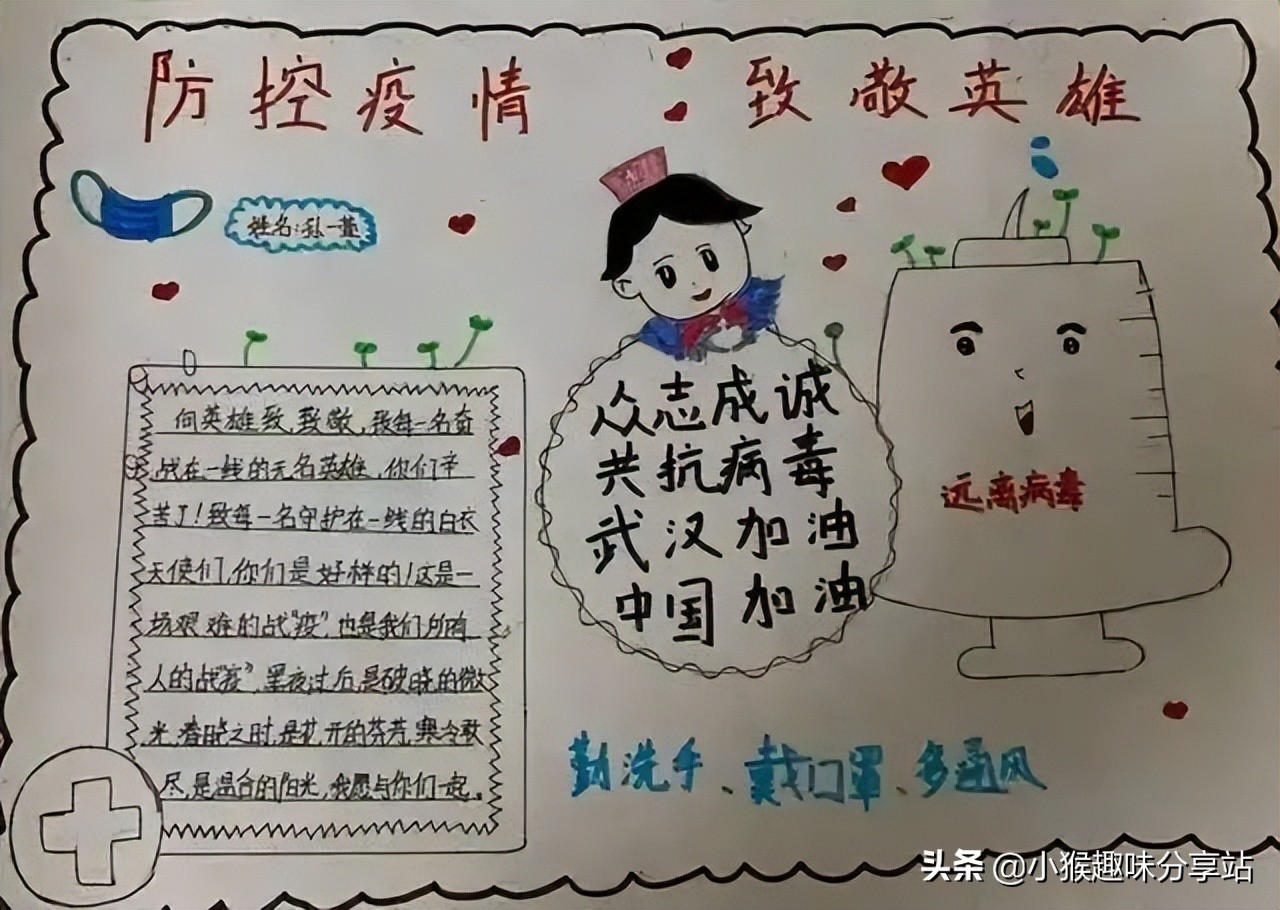 防控疫情 致敬英雄
姓名:孙一
向英雄致,致敬,致每一名奋
战在一线的无名英雄,你们辛
苦了!致每一名守护在一线的白衣
天使们,你们是好样的!这是一
场艰难的战"疫",也是我们所有
人的战"疫",黑夜过后,是破晓的微
光,春晓之时,是花开的芬芳,寒冷散
尽,是温合的阳光,我愿与你们一起。
众志成诚
共抗病毒
武汉加油
中国加油
远离病毒
勤洗手、戴口罩、多通风
头条 @小猴趣味分享站